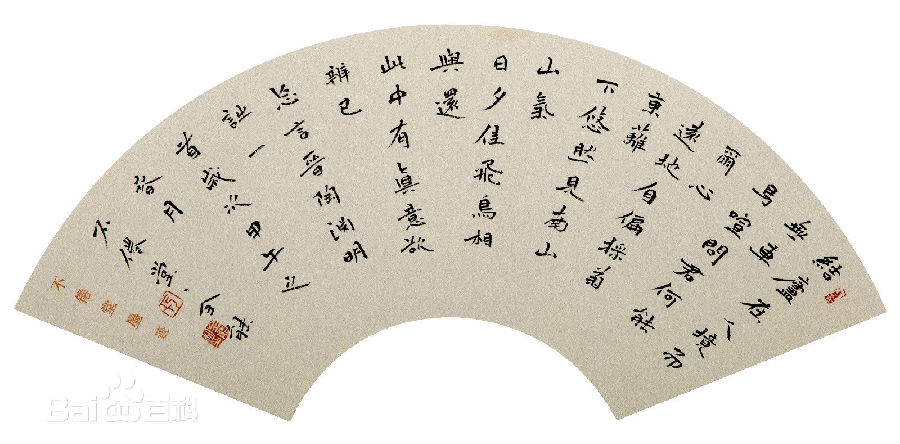 結廬在人境而
無車
馬喧問君何能
爾心
遠地自偏採菊
東籬
下悠然見南山
山氣
日夕佳飛鳥相
與還
此中有真意欲
辨已
忘言晉陶淵明
詩一
首歲次甲午
月
不
堂
Bai百科